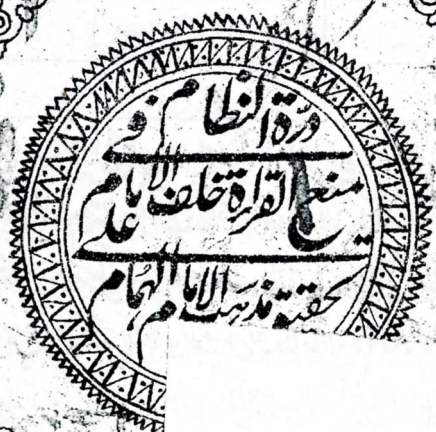 درة النظام في
منع القراة خلف الامام على
حقية مذهب الامام الهمام